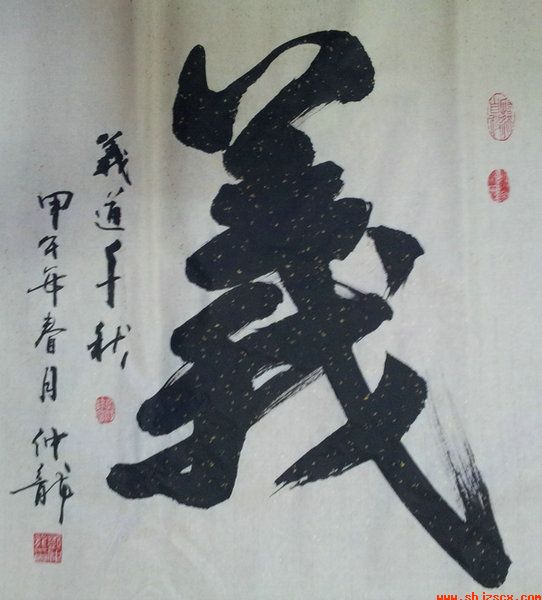 義
義道千秋
甲午年春月仲龍
www.shjzscx.com